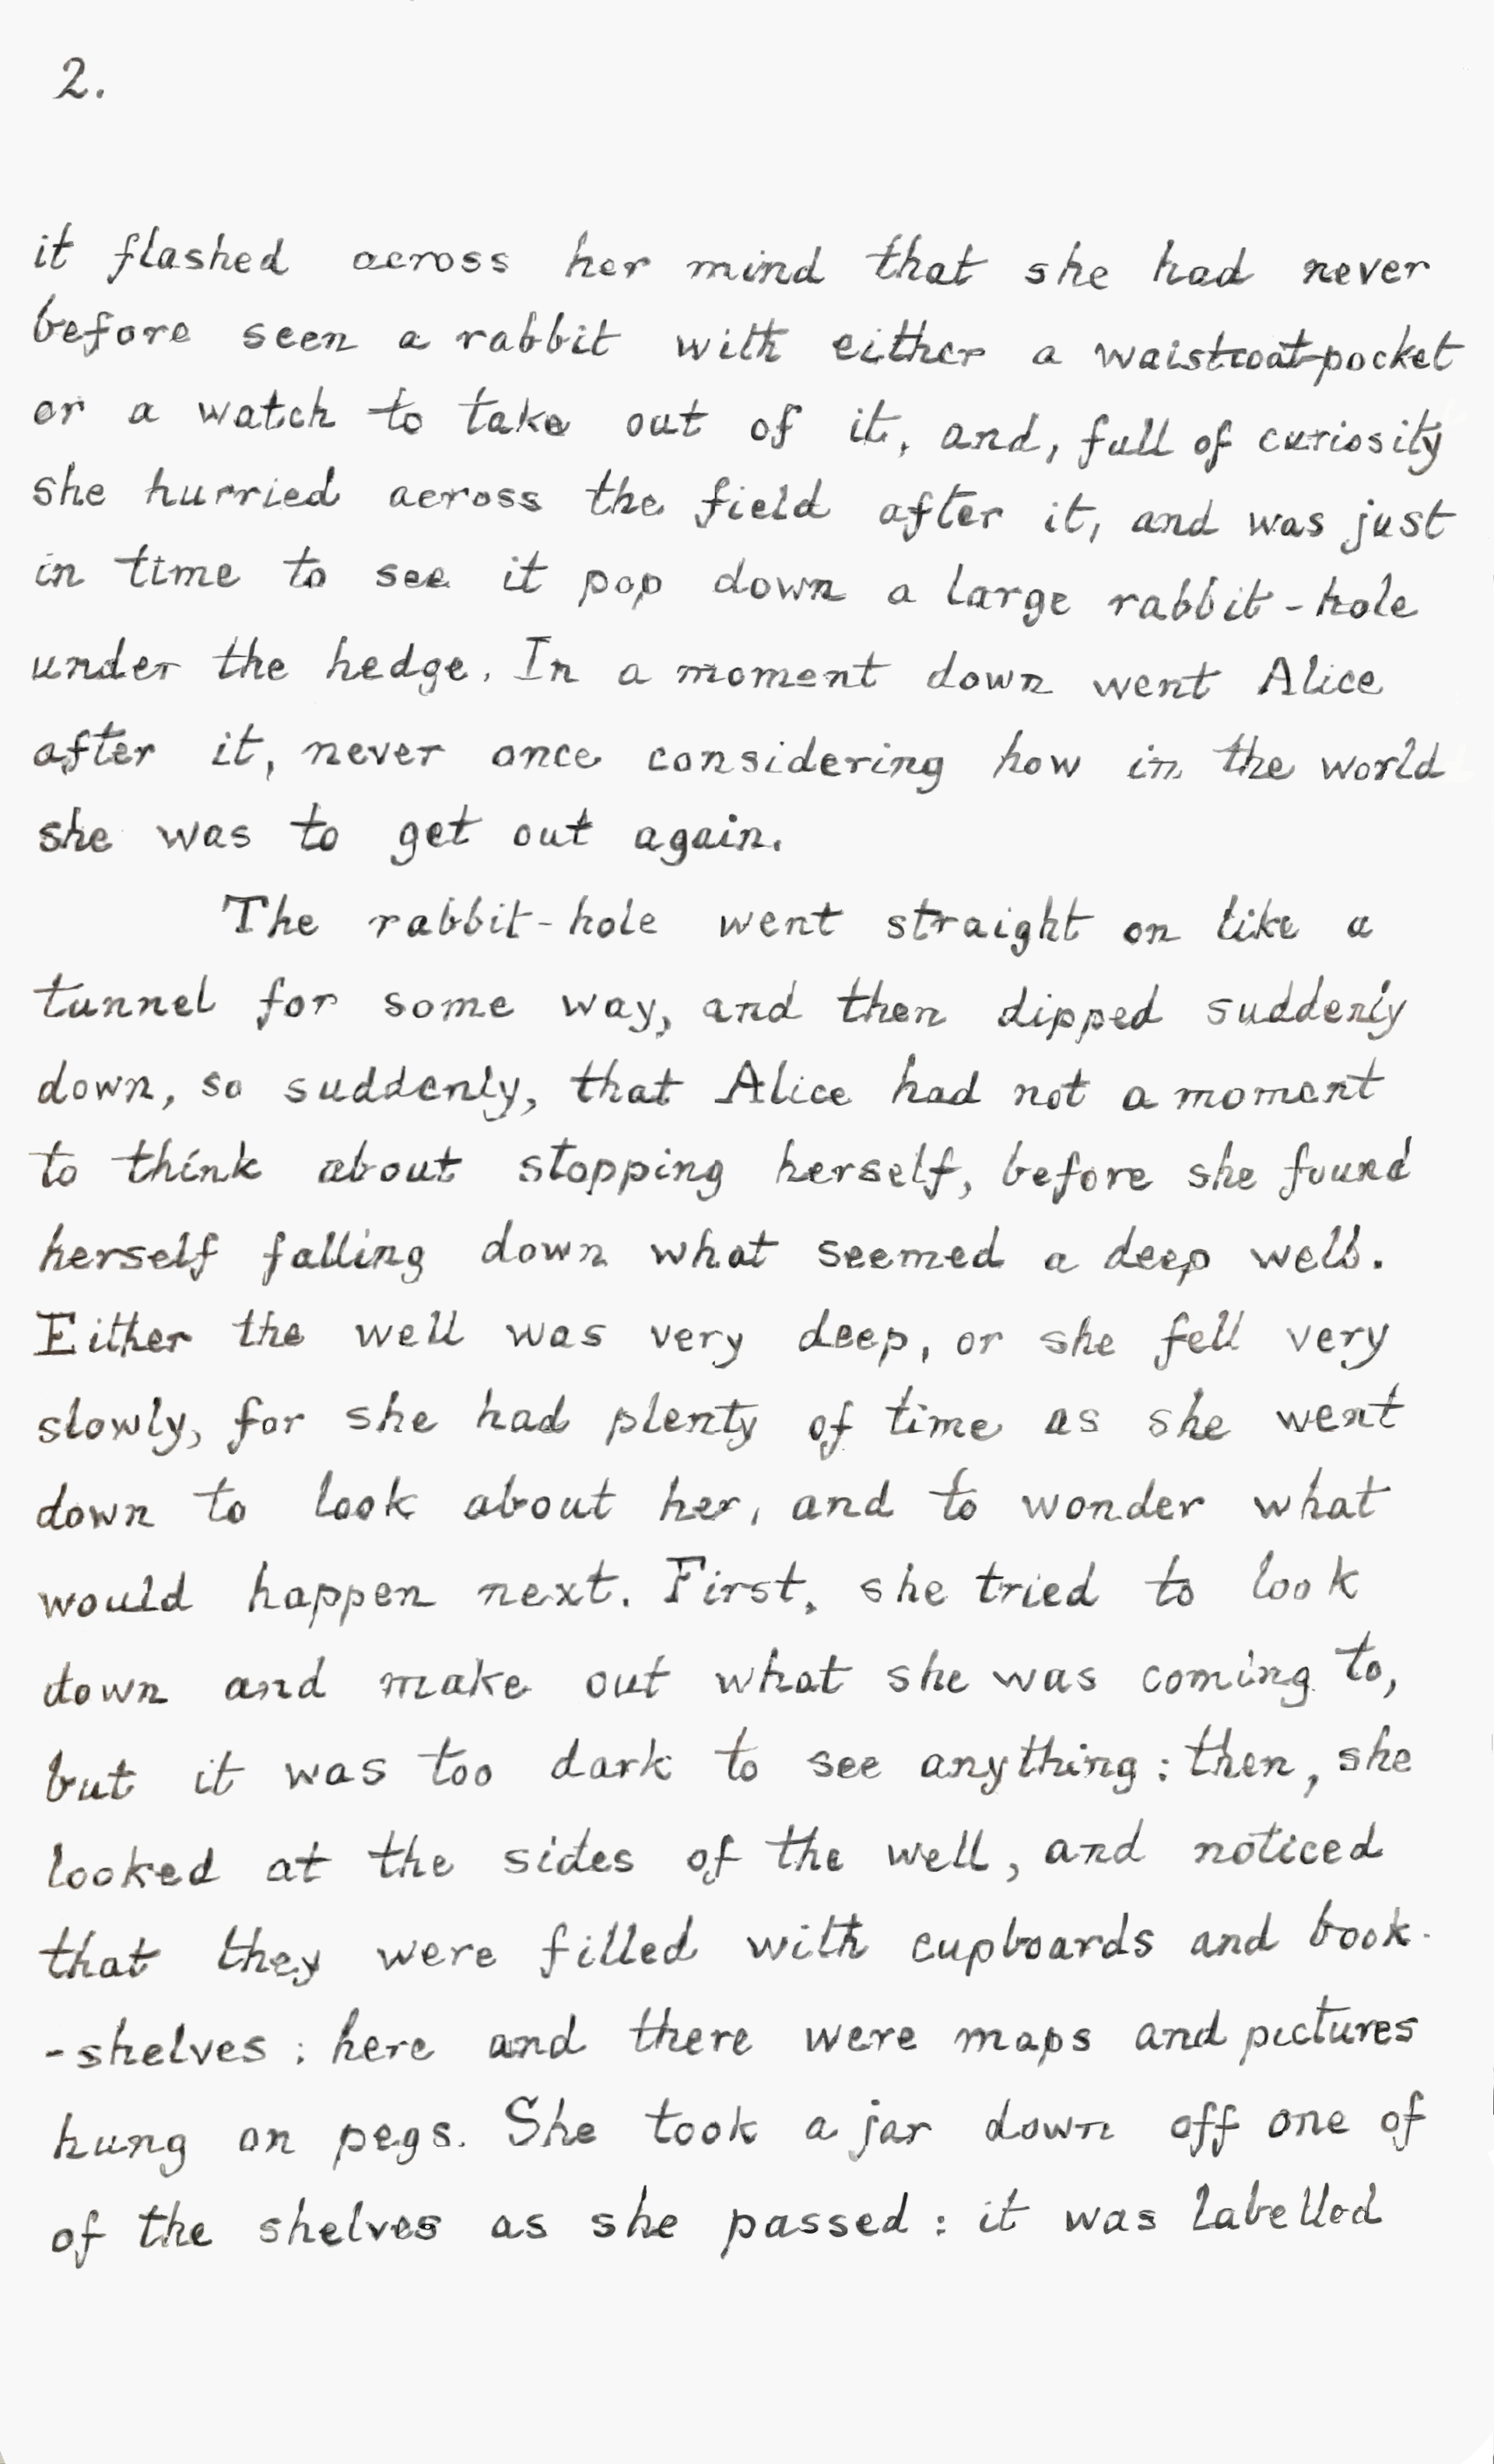 2.
it flashed across her mind that she had never
before seen a rabbit with either a waistcoat-pocket
or a watch to take out of it, and, full of curiosity
she hurried across the field after it, and was just
in time to see it pop down a large rabbit-hole
under the hedge. In a moment down went Alice
after it, never once considering how in the world
she was to get out again.
The rabbit-hole went straight on like a
tunnel for some way, and then dipped suddenly
down, so suddenly, that Alice had not a moment
to think about stopping herself, before she found
herself falling down what seemed a deep well.
Either the well was very deep, or she fell very
slowly, for she had plenty of time as she went
down to look about her, and to wonder what
would happen next. First, she tried to look
down and make out what she was coming to,
but it was too dark to see anything: then, she
looked at the sides of the well, and noticed
that they were filled with cupboards and book-
-shelves: here and there were maps and pictures
hung on pegs. She took a jar down off one of
of the shelves as she passed: it was labelled